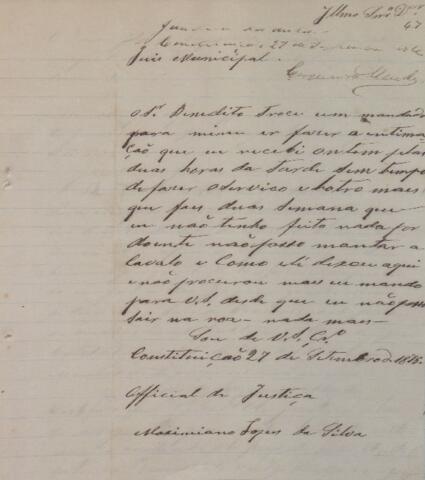 Illmo Snr. Dor.
47
Constituição 27 de Setembro
Juis Municipal.
O Sr. Benedito troce um mandado
para mim ir fazer a intima
ção que eu recebi ontem pelas
duas horas da tarde sem tempo
de fazer o servico e hotro mais
que fais duas Semana que
eu não tenho feito nada por
doente não posso montar a
Cavalo e Como eli dexou aqui
e não procurou mais eu mando
para V.S. desde que eu não posso
sair na roa nada mais
Sou de V.S. Cro.
Constituição 27 de Setembro de
Official de Justiça
Maximiano Lopes da Silva